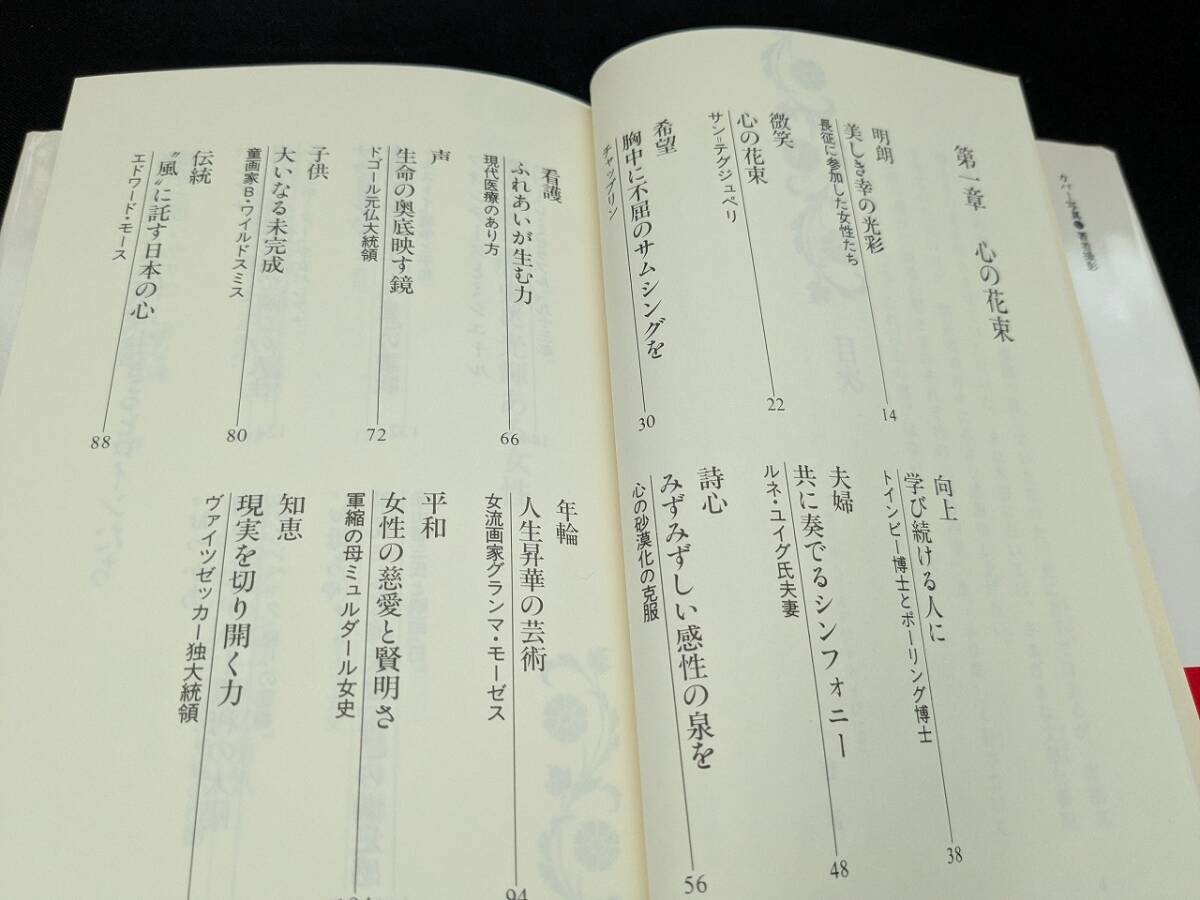 カバー写真● 著者撮影
第一章　心の花束
明朗
美しき幸の光彩
長征に参加した女性たち
14
微笑
心の花束
サン=テグジュペリ
22
希望
胸中に不屈のサムシングを
チャップリン
30
向上
学び続ける人に
トインビー博士とポーリング博士
38
夫婦
共に奏でるシンフォニー
ルネ・ユイグ氏夫妻
48
詩心
みずみずしい感性の泉を
心の砂漠化の克服
56
看護
ふれあいが生む力
現代医療のあり方
66
声
生命の奥底映す鏡
ドゴール元仏大統領
72
子供
大いなる未完成
童画家B・ワイルドスミス
80
伝統
〝風〟に託す日本の心
エドワード・モース
88
年輪
人生昇華の芸術
女流画家グランマ・モーゼス
94
平和
女性の慈愛と賢明さ
軍縮の母ミュルダール女史
知恵
現実を切り開く力
ヴァイツゼッカー独大統領
目次